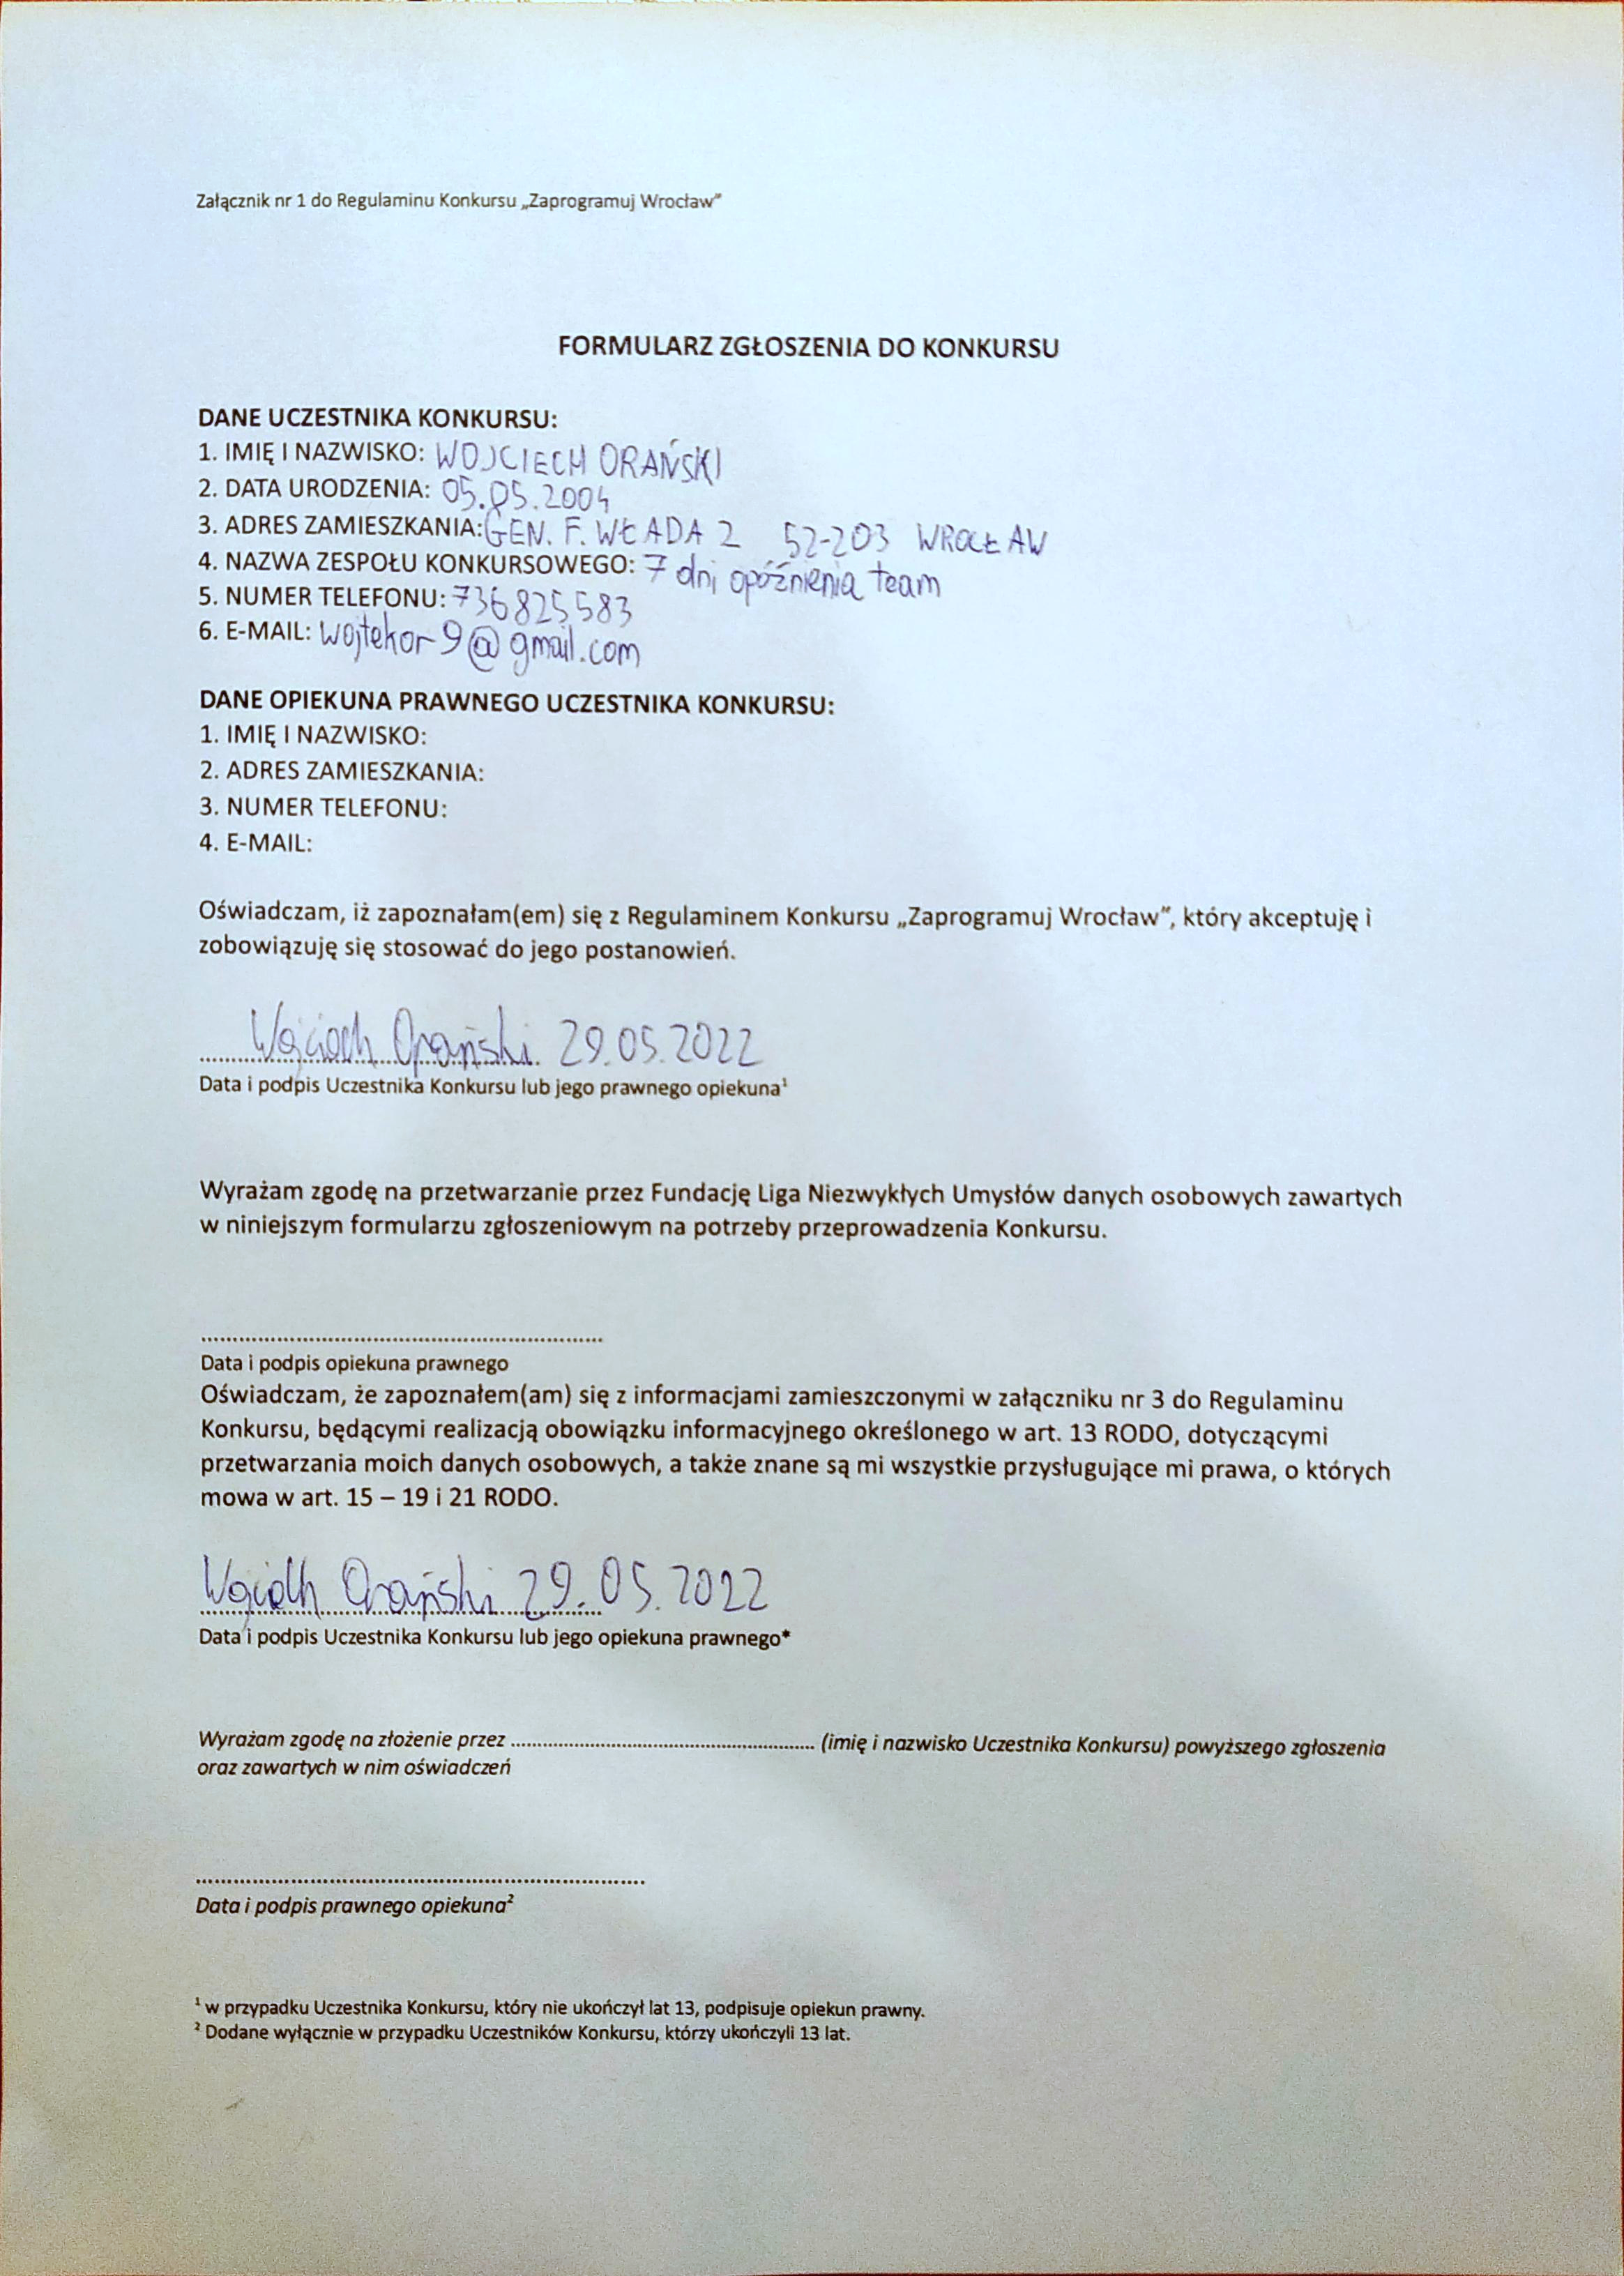 Załącznik nr 1 do Regulaminu Konkursu „Zaprogramuj Wrocław"
FORMULARZ ZGŁOSZENIA DO KONKURSU
DANE UCZESTNIKA KONKURSU:
1. IMIĘ I NAZWISKO: WOJCIECH ORAŃSKI
2. DATA URODZENIA: 05.05.2004
3. ADRES ZAMIESZKANIA: GEN. F. WŁADA 2 52-203 WROCŁAW
4. NAZWA ZESPOŁU KONKURSOWEGO: 7 dni opóźnienia team
5. NUMER TELEFONU: 736825583
6. E-MAIL: wojtekor9@gmail.com
DANE OPIEKUNA PRAWNEGO UCZESTNIKA KONKURSU:
1. IMIĘ I NAZWISKO:
2. ADRES ZAMIESZKANIA:
3. NUMER TELEFONU:
4. E-MAIL:
Oświadczam, iż zapoznałam(em) się z Regulaminem Konkursu „Zaprogramuj Wrocław", który akceptuję i
zobowiązuję się stosować do jego postanowień.
Wojciech Orański 29.05.2022
Data i podpis Uczestnika Konkursu lub jego prawnego opiekuna¹
Wyrażam zgodę na przetwarzanie przez Fundację Liga Niezwykłych Umysłów danych osobowych zawartych
w niniejszym formularzu zgłoszeniowym na potrzeby przeprowadzenia Konkursu.
................................................................
Data i podpis opiekuna prawnego
Oświadczam, że zapoznałem(am) się z informacjami zamieszczonymi w załączniku nr 3 do Regulaminu
Konkursu, będącymi realizacją obowiązku informacyjnego określonego w art. 13 RODO, dotyczącymi
przetwarzania moich danych osobowych, a także znane są mi wszystkie przysługujące mi prawa, o których
mowa w art. 15 – 19 i 21 RODO.
Wojciech Orański 29.05.2022
Data i podpis Uczestnika Konkursu lub jego opiekuna prawnego*
Wyrażam zgodę na złożenie przez ............................................................ (imię i nazwisko Uczestnika Konkursu) powyższego zgłoszenia
oraz zawartych w nim oświadczeń
........................................................................
Data i podpis prawnego opiekuna²
¹ w przypadku Uczestnika Konkursu, który nie ukończył lat 13, podpisuje opiekun prawny.
² Dodane wyłącznie w przypadku Uczestników Konkursu, którzy ukończyli 13 lat.